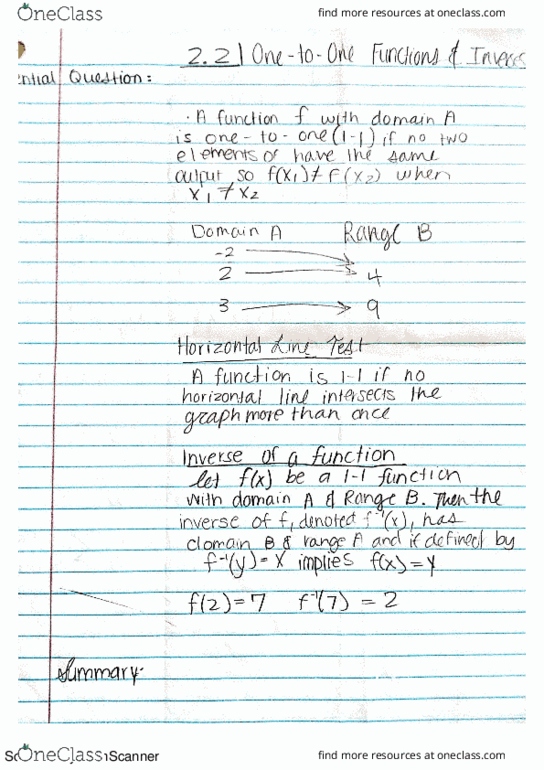 OneClass
find more resources at oneclass.com
2.2 | One-to-One Functions & Invers
ential Question:
· A function f with domain A
is one-to-one (1-1) if no two
elements of have the same
output so f(x₁) ≠ f(x₂) when
x₁ ≠ x₂
Domain A Range B
-2
2 4
3 9
Horizontal Line Test
A function is 1-1 if no
horizontal line intersects the
graph more than once
Inverse of a function
let f(x) be a 1-1 function
with domain A & Range B. Then the
inverse of f, denoted f⁻¹(x), has
domain B & range A and if defined by
f⁻¹(y) = x implies f(x) = y
f(2) = 7 f⁻¹(7) = 2
Summary:
OneClass Scanner
find more resources at oneclass.com